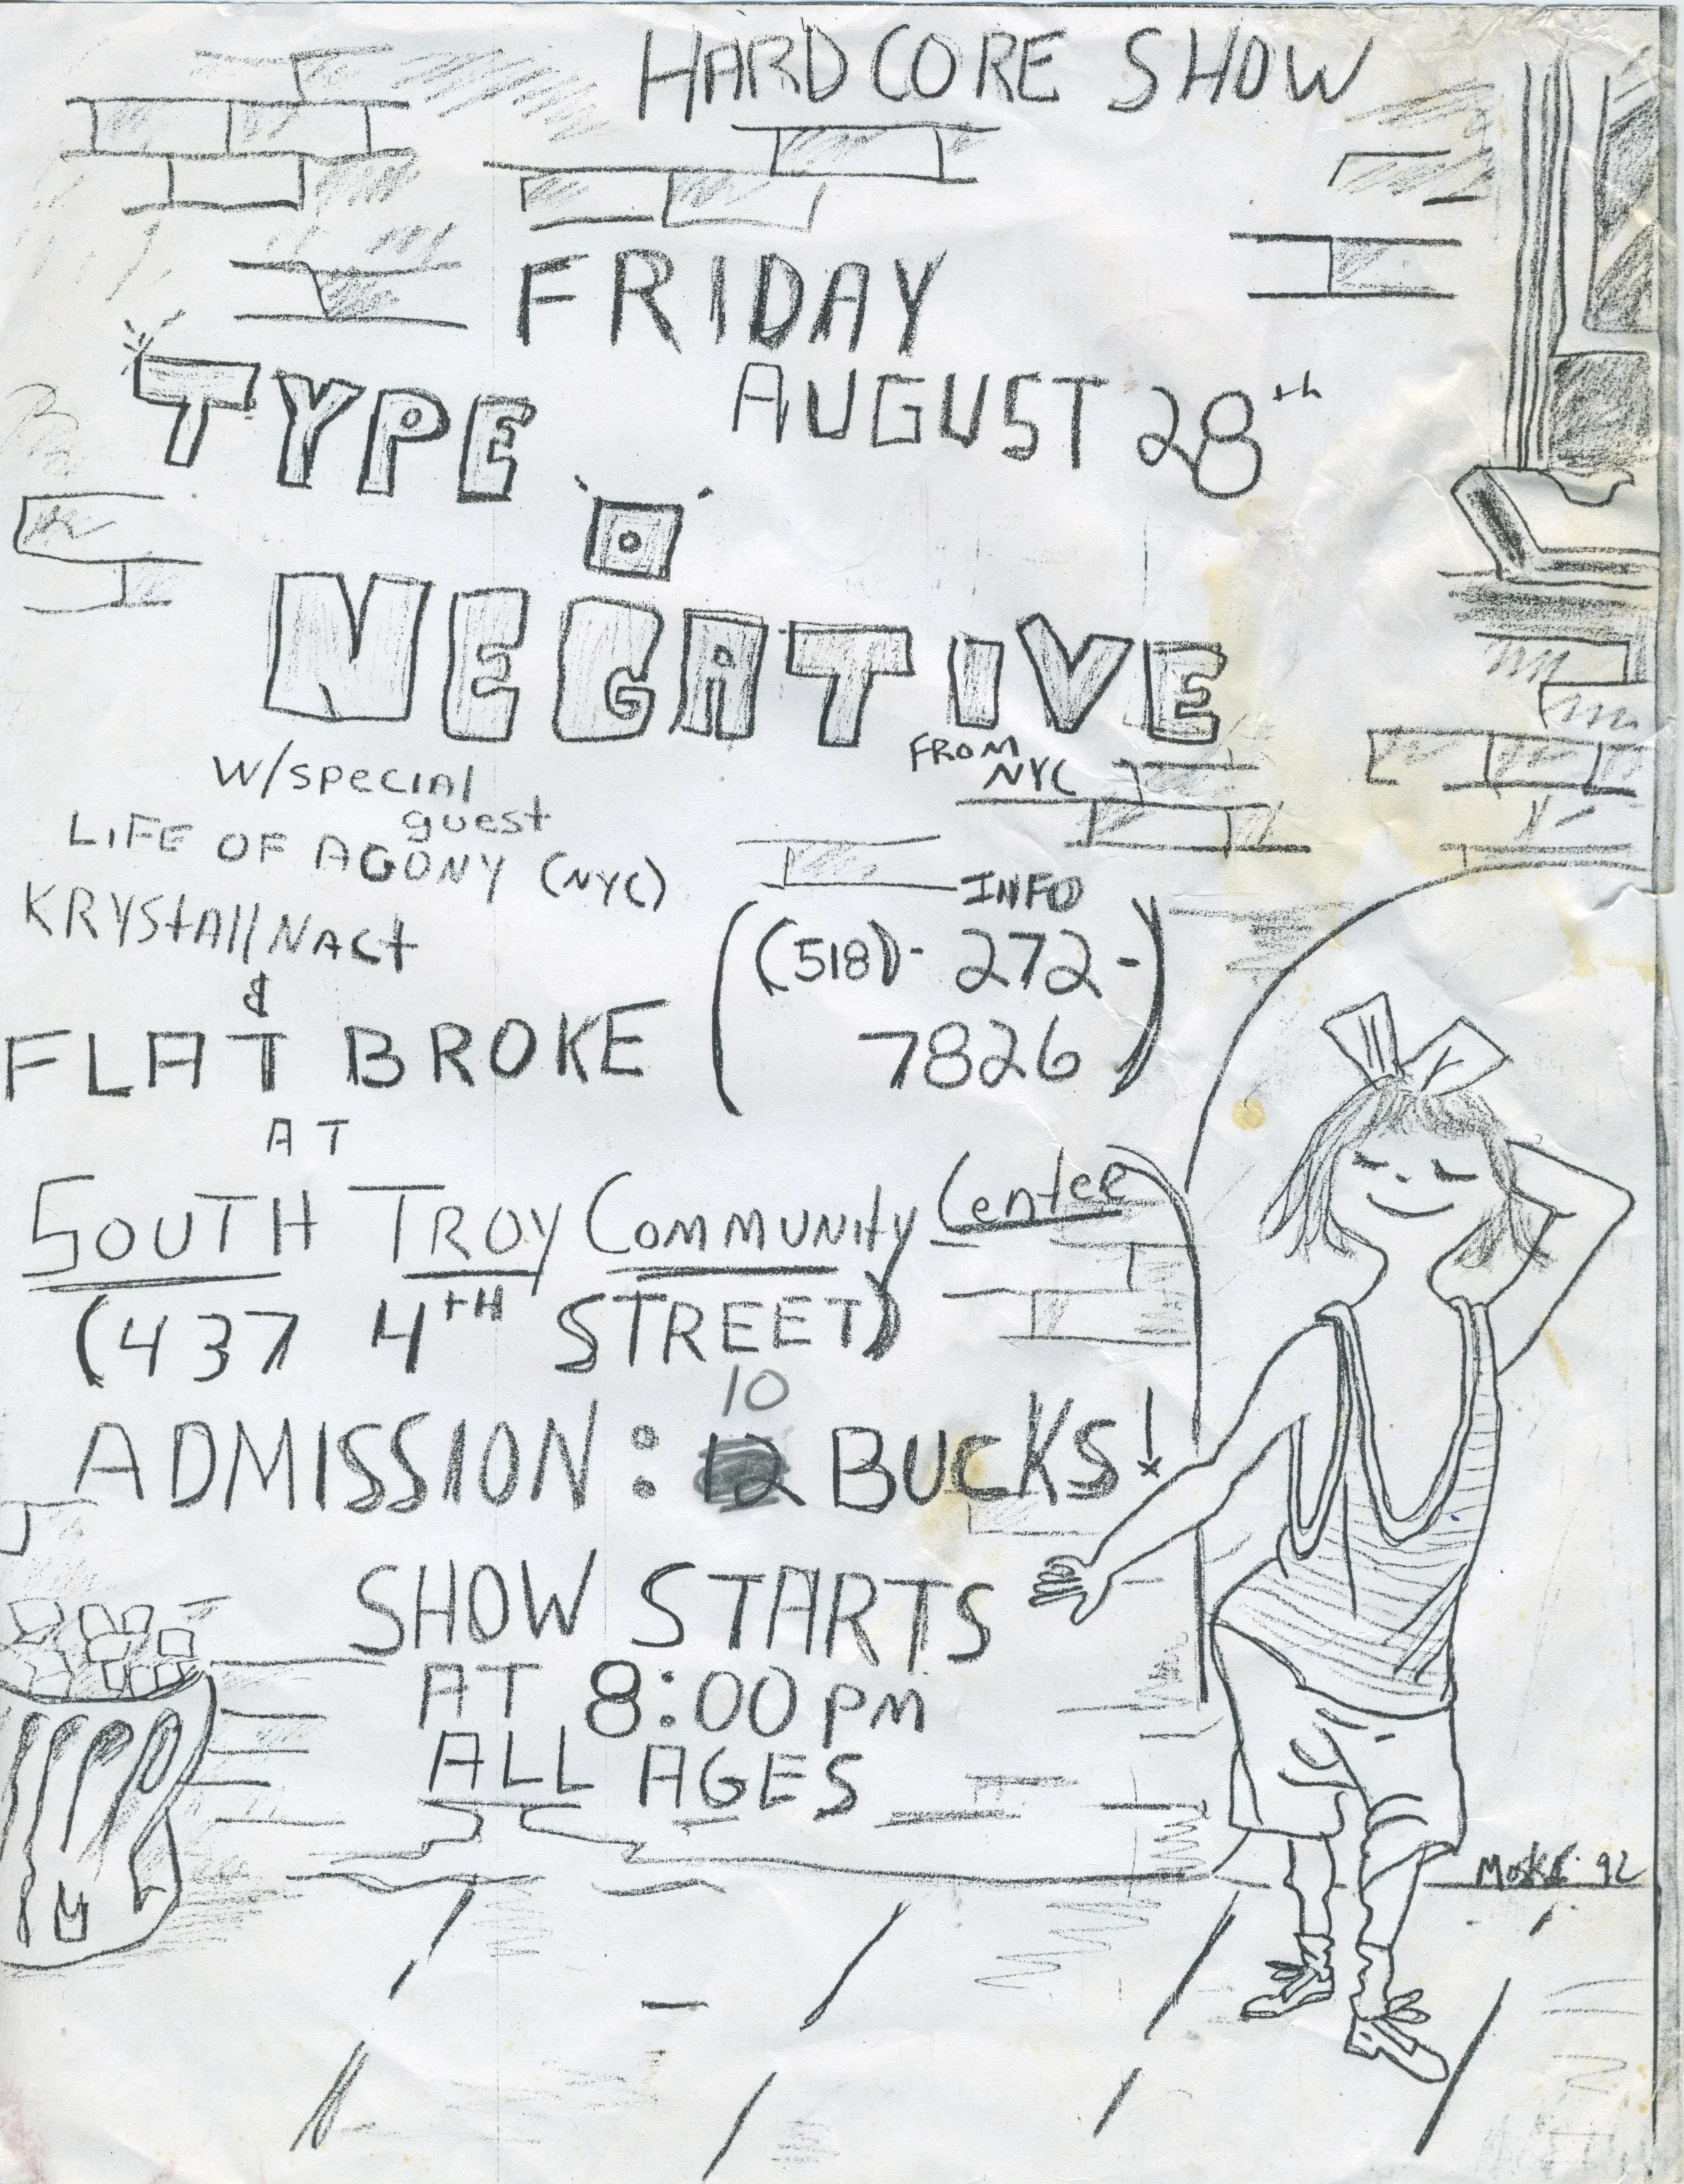 HARDCORE SHOW
FRIDAY
AUGUST 28th
TYPE
O
NEGATIVE
FROM
NYC
w/special
guest
LIFE OF AGONY (NYC)
KRYStAllNACt
&
FLAT BROKE
INFO
((518)- 272-
7826)
AT
SOUTH TROY COMMUNitY Center
(437 4TH STREET)
10
ADMISSION: 12 BUCKS!
SHOW STARTS
AT 8:00 PM
ALL AGES
92